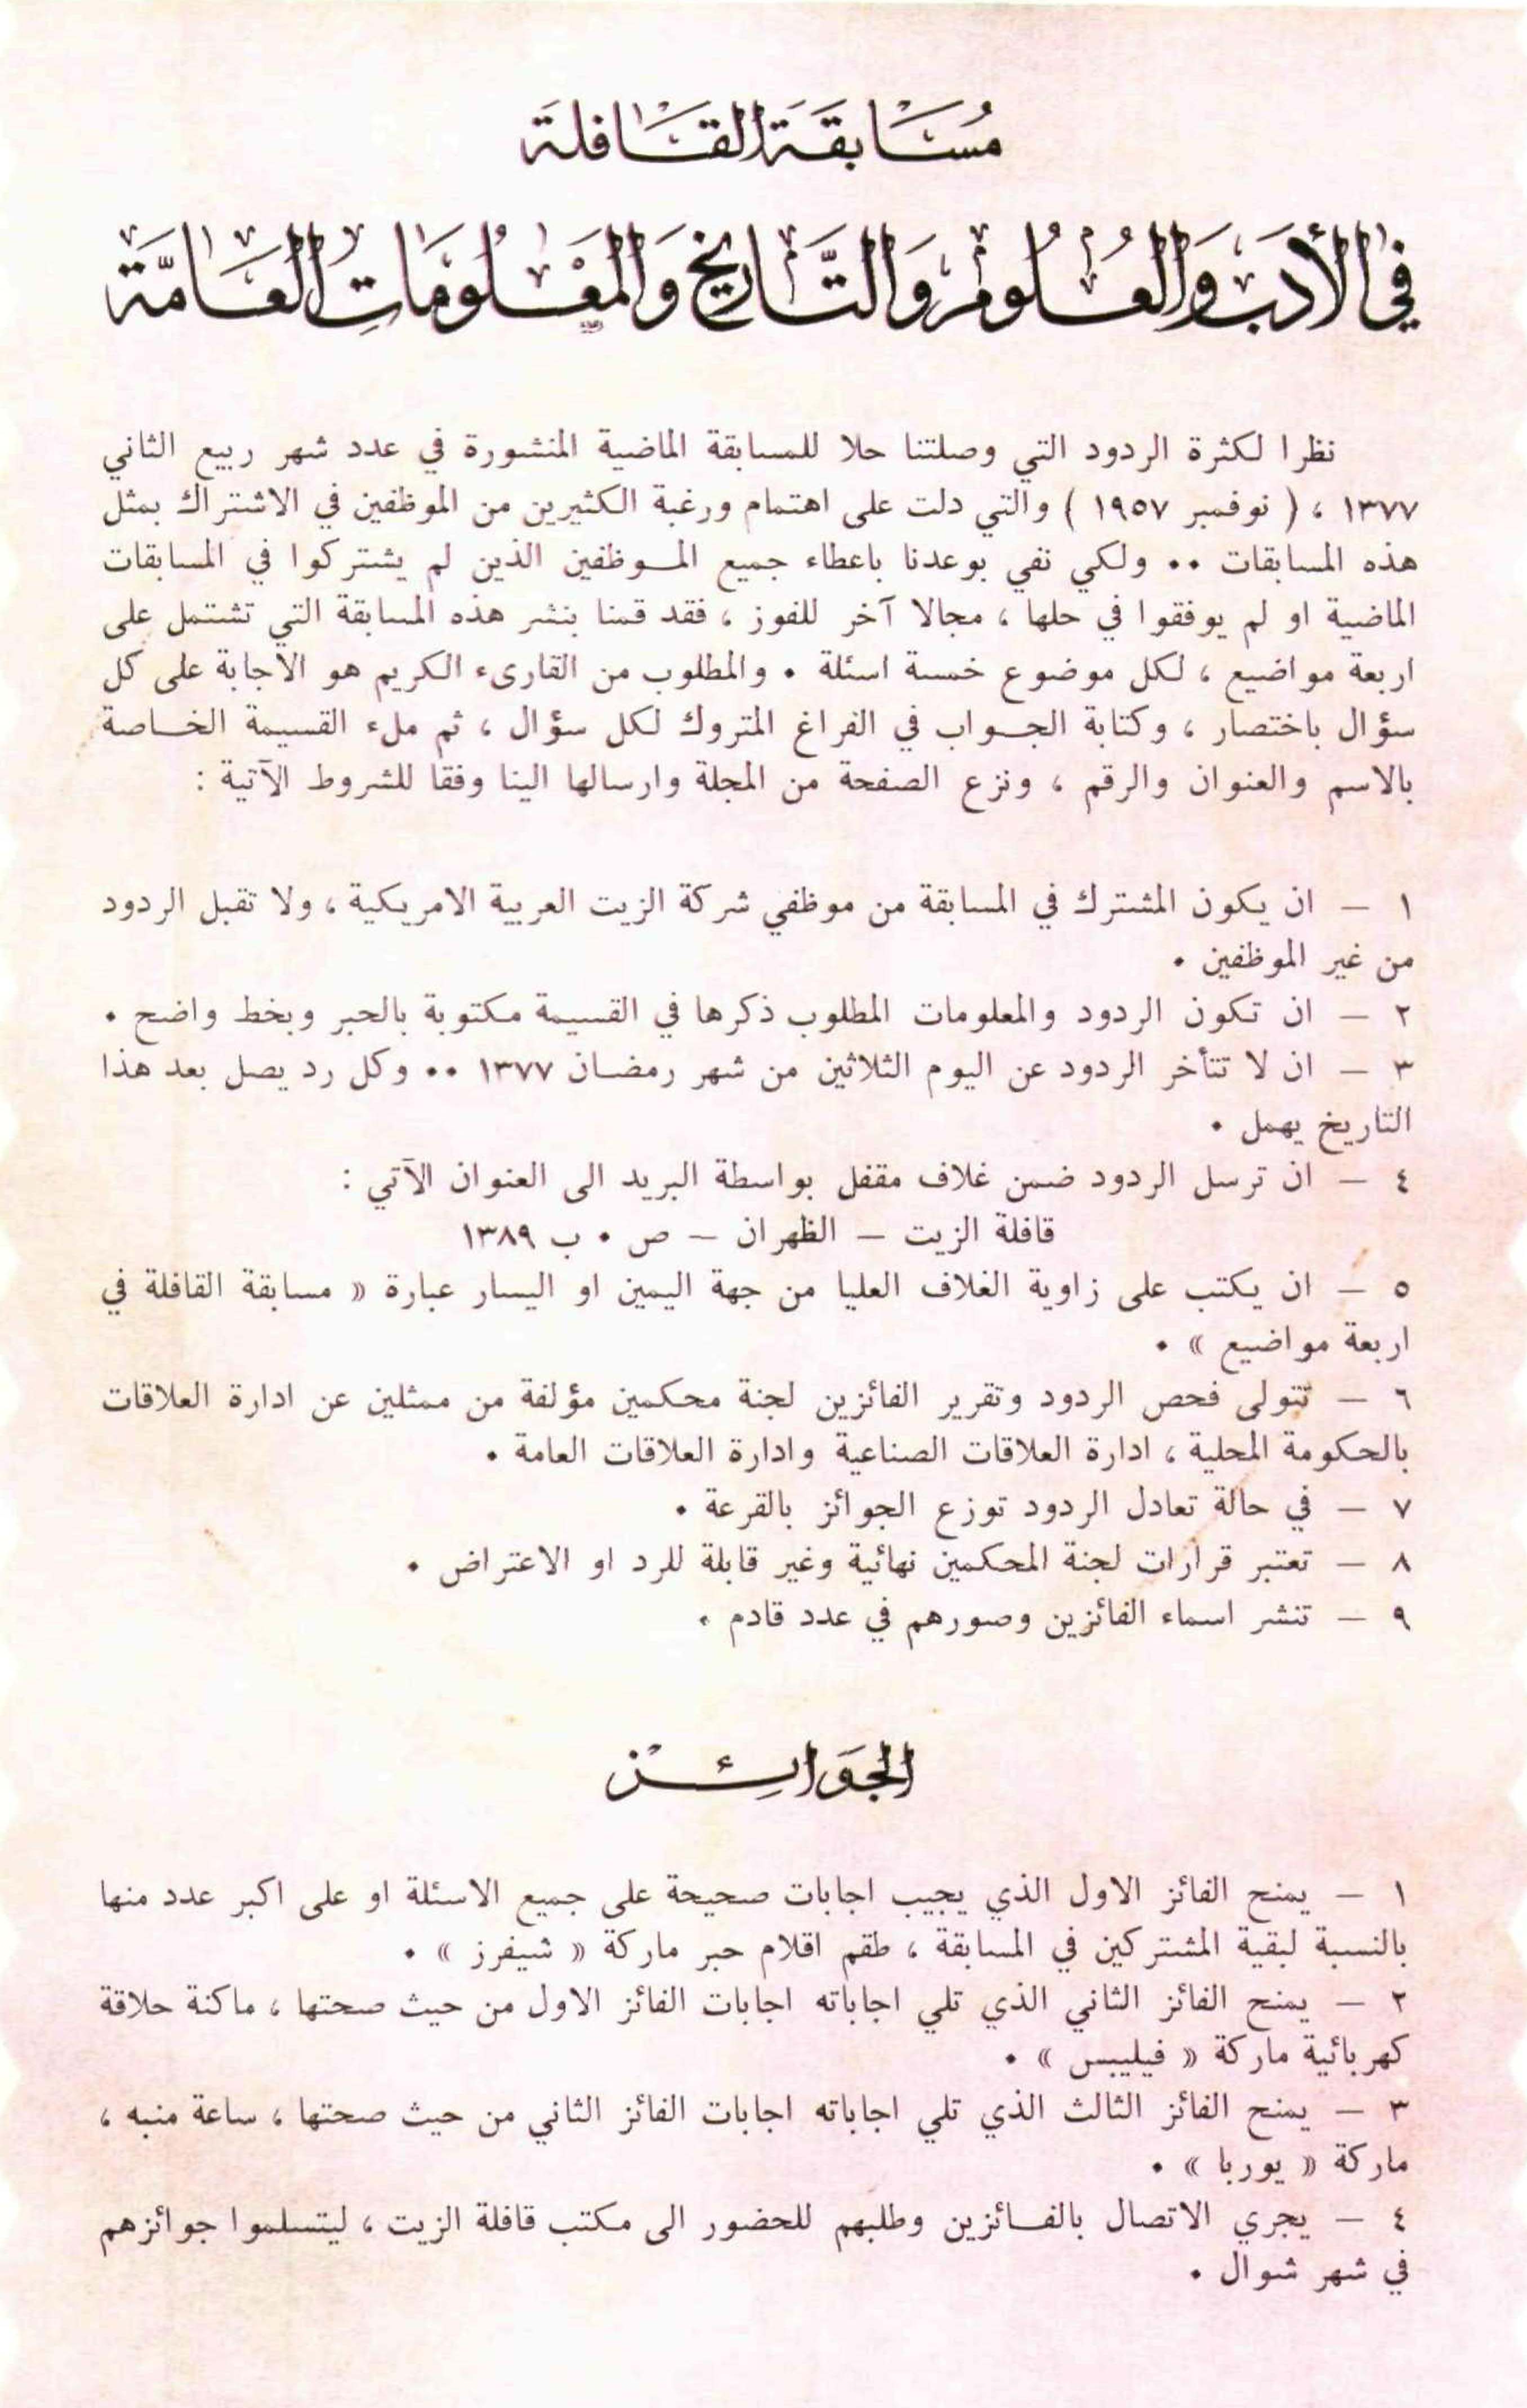 مُسَابَقَة القَافِلَة
في الأدَب وَالعُلُوم وَالتَّارِيخ وَالمَعْلُومَاتِ العَامَّة
نظرا لكثرة الردود التي وصلتنا حلا للمسابقة الماضية المنشورة في عدد شهر ربيع الثاني
١٣٧٧ ، ( نوفمبر ١٩٥٧ ) والتي دلت على اهتمام ورغبة الكثيرين من الموظفين في الاشتراك بمثل
هذه المسابقات .. ولكي نفي بوعدنا باعطاء جميع الموظفين الذين لم يشتركوا في المسابقات
الماضية او لم يوفقوا في حلها ، مجالا آخر للفوز ، فقد قمنا بنشر هذه المسابقة التي تشتمل على
اربعة مواضيع ، لكل موضوع خمسة اسئلة . والمطلوب من القارىء الكريم هو الاجابة على كل
سؤال باختصار ، وكتابة الجواب في الفراغ المتروك لكل سؤال ، ثم ملء القسيمة الخاصة
بالاسم والعنوان والرقم ، ونزع الصفحة من المجلة وارسالها الينا وفقا للشروط الآتية :
١ – ان يكون المشترك في المسابقة من موظفي شركة الزيت العربية الامريكية ، ولا تقبل الردود
من غير الموظفين .
٢ – ان تكون الردود والمعلومات المطلوب ذكرها في القسيمة مكتوبة بالحبر وبخط واضح .
٣ – ان لا تتأخر الردود عن اليوم الثلاثين من شهر رمضان ١٣٧٧ .. وكل رد يصل بعد هذا
التاريخ يهمل .
٤ – ان ترسل الردود ضمن غلاف مقفل بواسطة البريد الى العنوان الآتي :
قافلة الزيت – الظهران – ص . ب ١٣٨٩
٥ – ان يكتب على زاوية الغلاف العليا من جهة اليمين او اليسار عبارة « مسابقة القافلة في
اربعة مواضيع » .
٦ – تتولى فحص الردود وتقرير الفائزين لجنة محكمين مؤلفة من ممثلين عن ادارة العلاقات
بالحكومة المحلية ، ادارة العلاقات الصناعية وادارة العلاقات العامة .
٧ – في حالة تعادل الردود توزع الجوائز بالقرعة .
٨ – تعتبر قرارات لجنة المحكمين نهائية وغير قابلة للرد او الاعتراض .
٩ – تنشر اسماء الفائزين وصورهم في عدد قادم .
الجَوَائِز
١ – يمنح الفائز الاول الذي يجيب اجابات صحيحة على جميع الاسئلة او على اكبر عدد منها
بالنسبة لبقية المشتركين في المسابقة ، طقم اقلام حبر ماركة « شيفرز » .
٢ – يمنح الفائز الثاني الذي تلي اجاباته اجابات الفائز الاول من حيث صحتها ، ماكنة حلاقة
كهربائية ماركة « فيليبس » .
٣ – يمنح الفائز الثالث الذي تلي اجاباته اجابات الفائز الثاني من حيث صحتها ، ساعة منبه ،
ماركة « يوربا » .
٤ – يجري الاتصال بالفائزين وطلبهم للحضور الى مكتب قافلة الزيت ، ليتسلموا جوائزهم
في شهر شوال .